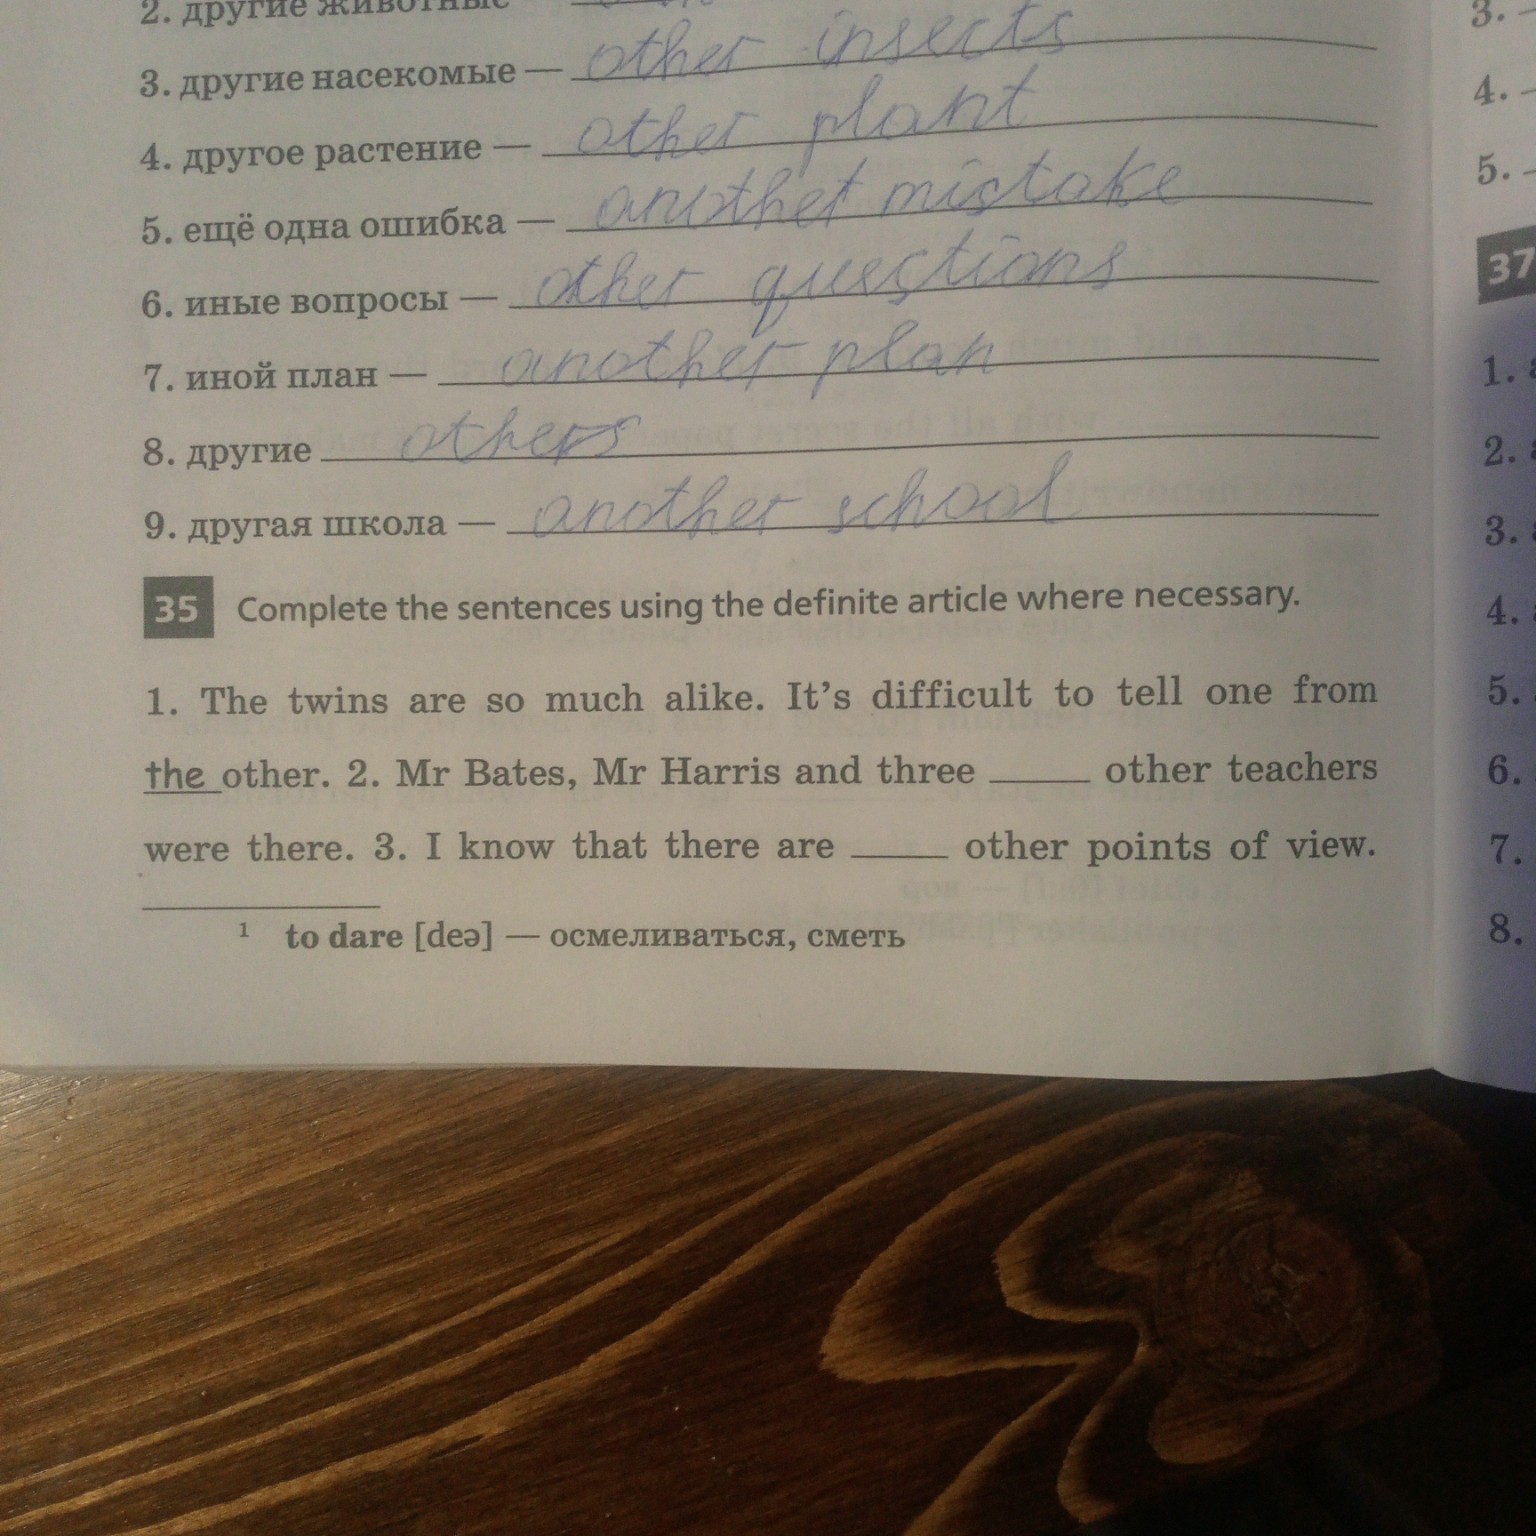 2. другие животные
3. другие насекомые — other insects
4. другое растение — other plant
5. ещё одна ошибка — another mistake
6. иные вопросы — other questions
7. иной план — another plan
8. другие others
9. другая школа — another school
35 Complete the sentences using the definite article where necessary.
1. The twins are so much alike. It's difficult to tell one from
the other. 2. Mr Bates, Mr Harris and three _____ other teachers
were there. 3. I know that there are _____ other points of view.
1 to dare [deə] — осмеливаться, сметь
3. –
4. –
5. –
37
1.
2.
3.
4.
5.
6.
7.
8.